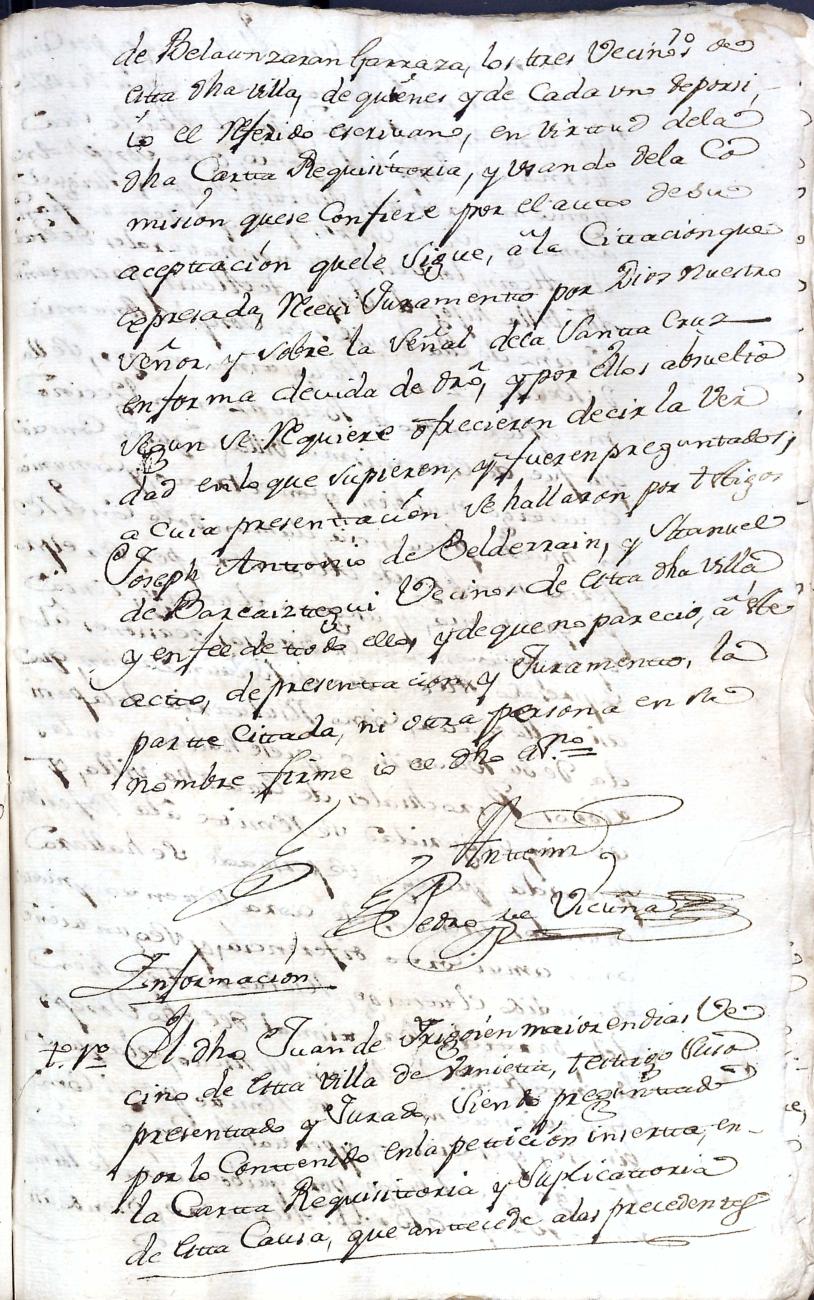 de Belaunzaran Garraza, los tres Vecinos de
esta dha villa, de quienes y de Cada uno de por si,
io el Referido escrivano, en virtud de la
dha Cartta Requisittoria, y usando de la Co
mision que se Confiere por el autto de su
acepttación que le sigue, a la Cittacion que
expresada, Recivi Juramentto por Dios Nuestro
Señor, y sobre la Señal de la Santta Cruz
en forma devida de dro, y por ellos absuelto
segun se Requiere ofrecieron decir la Ver
dad en lo que supieren, y fueren preguntados;
a cuia presenttación se hallaron por testigos
Joseph Anttonio de Belderrain, y Manuel
de Barcaiztegui Vecinos de estta dha villa
y en fee de ttodo ello, y de que no parecio, a este
actto, de presenttacion, y Juramentto, la
partte Cittada, ni ottra persona en su
nombre firme io el dho ssno
Antte mi
Pedro de Vicuña
Informacion
to. 1º El dho Juan de Irigoien maior en dias Ve
cino de estta villa de Urnietta, testtigo Suso
presenttado y Jurado, siendo preguntado
por lo Conttenido en la pettición insertta, en
la Cartta Requisittoria y Suplicattoria
de estta Causa, que anttecede a las precedentes